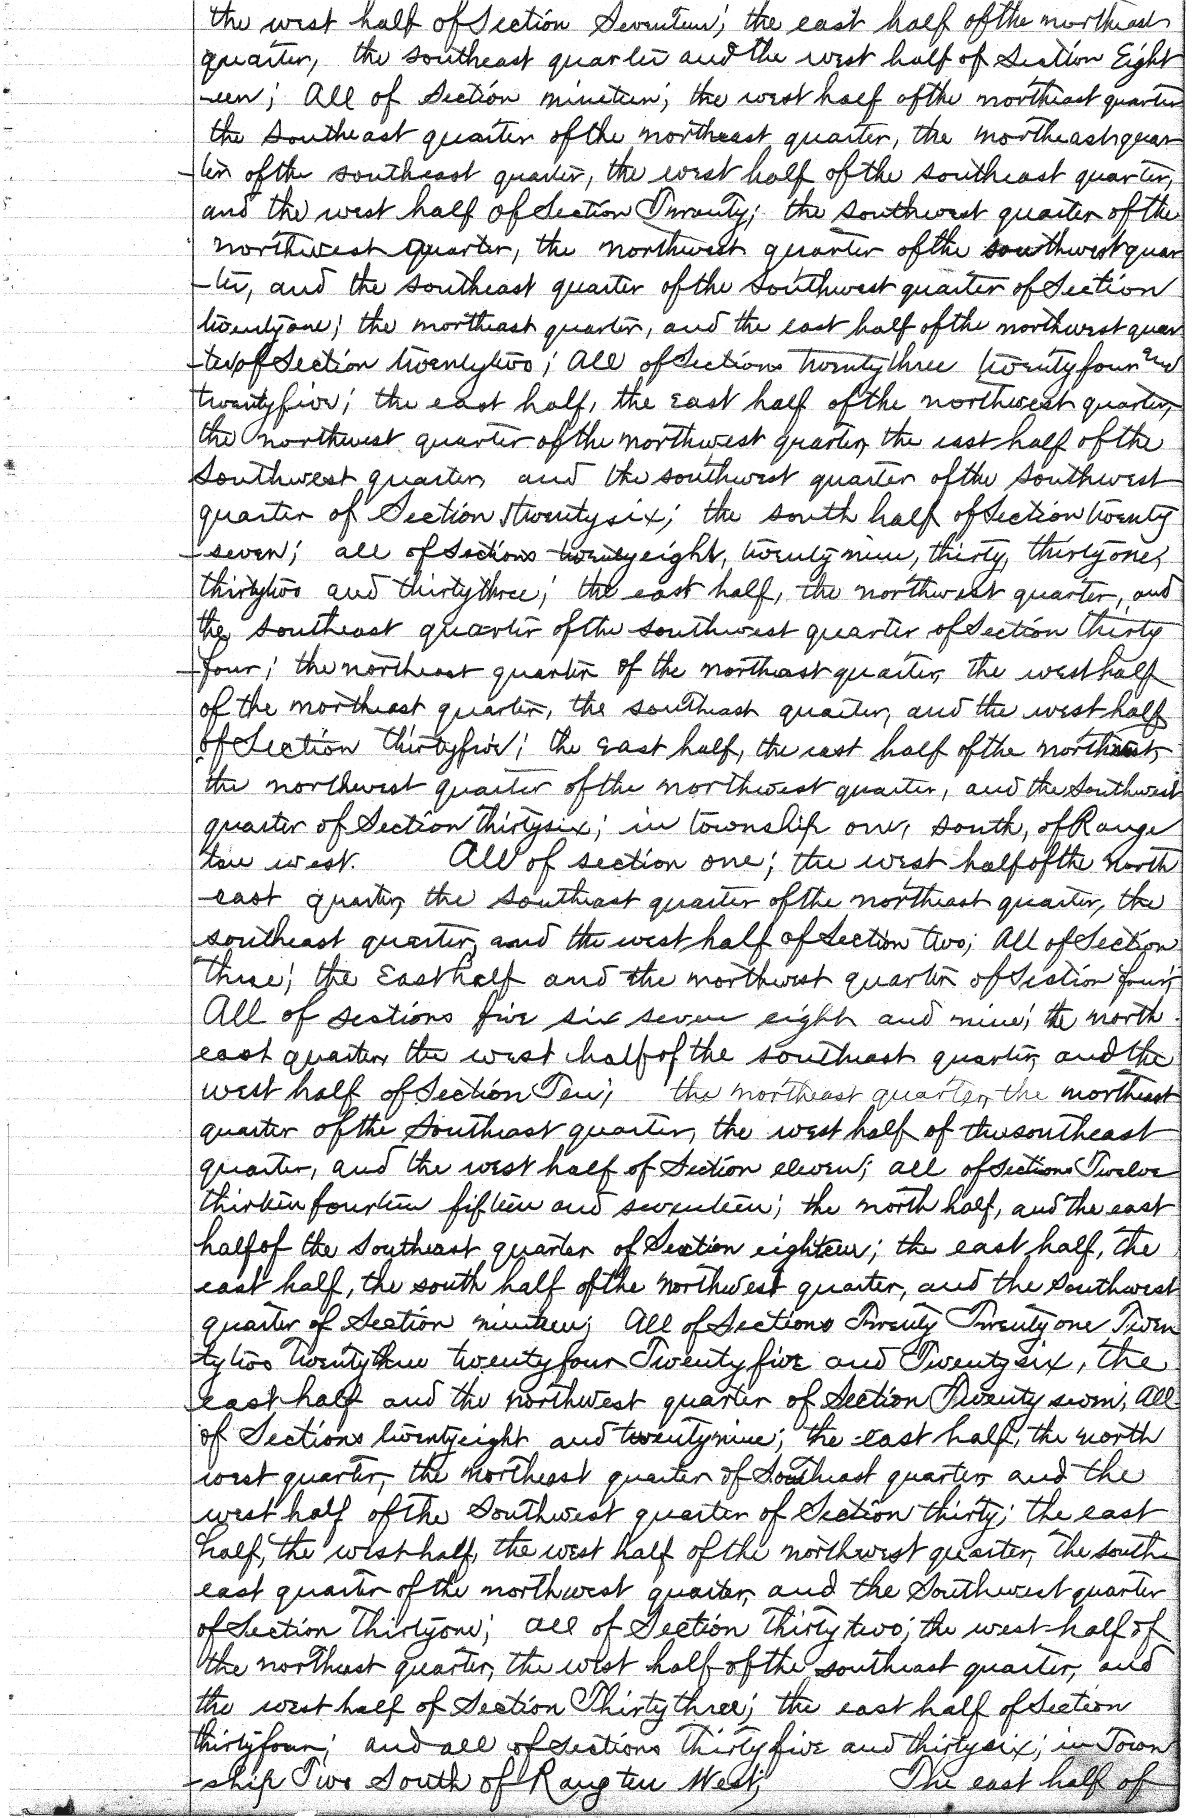 the west half of Section Seventeen; the east half of the northeast
quarter, the southeast quarter and the west half of Section Eight
-een; All of Section nineteen; the west half of the northeast quarter
the Southeast quarter of the northeast quarter, the northeast quar
-ter of the southeast quarter, the west half of the southeast quarter,
and the west half of Section Twenty; the southwest quarter of the
northwest quarter, the northwest quarter of the southwest quar
-ter, and the southeast quarter of the Southwest quarter of Section
twentyone; the northeast quarter, and the east half of the northwest quar
-ter of Section twentytwo; All of Sections twentythree twentyfour and
twentyfive; the east half, the East half of the northwest quarter,
the northwest quarter of the northwest quarter, the east half of the
Southwest quarter, and the southwest quarter of the southwest
quarter of Section twentysix; the south half of Section twenty
-seven; all of Sections twentyeight, twentynine, thirty, thirtyone,
thirtytwo and thirtythree; the east half, the northwest quarter, and
the southeast quarter of the southwest quarter of Section thirty
-four; the northeast quarter of the northeast quarter, the west half
of the northeast quarter, the southeast quarter, and the west half
of Section thirtyfive; the East half, the east half of the
the northwest quarter of the northwest quarter, and the Southwest
quarter of Section thirtysix; in township one, south, of Range
ten west. All of section one; the west half of the north
-east quarter, the southeast quarter of the northeast quarter, the
southeast quarter, and the west half of Section two; All of Section
three; the East half and the northwest quarter of Section four;
All of sections five six seven eight and nine; the north
east quarter, the west half of the southeast quarter, and the
west half of Section Ten; the northeast quarter, the northeast
quarter of the Southeast quarter, the west half of the southeast
quarter, and the west half of Section eleven; all of Sections Twelve
thirteen fourteen fifteen and seventeen; the north half, and the east
half of the Southeast quarter of Section eighteen; the east half, the
east half, the south half of the Northwest quarter, and the Southwest
quarter of Section nineteen; All of Sections Twenty Twentyone Twen
tytwo Twentythree twentyfour Twentyfive and Twentysix, the
east half and the northwest quarter of Section Twentyseven; All
of Sections twentyeight and twentynine; the east half, the north
west quarter, the northeast quarter of Southeast quarter, and the
west half of the Southwest quarter of Section thirty; the east
half, the west half, the west half of the northwest quarter, the south
east quarter of the northwest quarter, and the Southwest quarter
of Section Thirtyone; All of Section Thirtytwo; the west half of
the northeast quarter, the west half of the southeast quarter, and
the west half of Section Thirtythree; the east half of Section
thirtyfour; and all of Sections Thirtyfive and thirtysix; in Town
-ship Two South of Rang ten West; The east half of